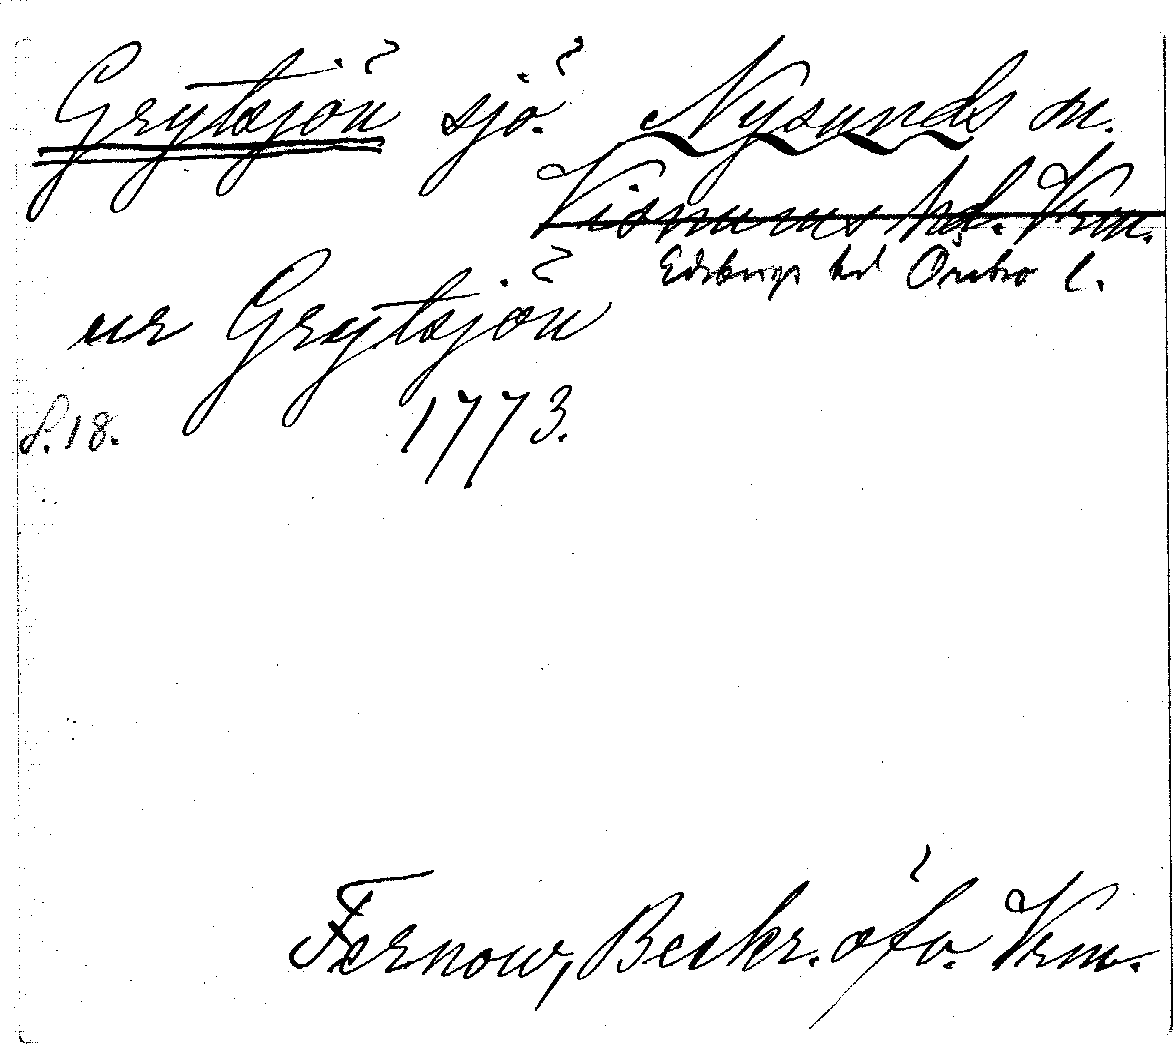 Grytsjön sjö. Nysunds sn.
Visnums hd. Vrm.
Edsbergs hd Örebro l.
ur Grytsjön
S. 18. 1773.
Fernow, Beskr. öfv. Vrm.